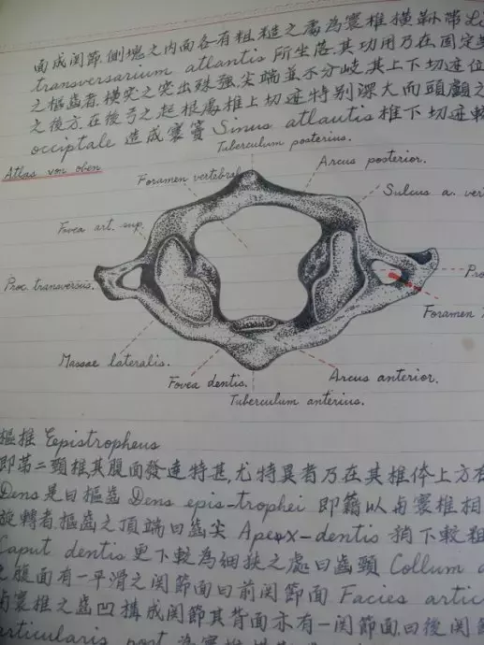 面成関節,側塊之内面各有粗糙之處為寰椎横韌帶
transversarium atlantis 所坐落,其功用乃在固定
之樞齒者,横突之突出殊強,尖端並不分岐,其上下切迹位
之後方,在後弓之起根處,椎上切迹特别深大而頭顱之
occiptale 造成寰竇 Sinus atlautis 椎下切迹
Tuberculum posterius.
Atlas von oben
Arcus posterior.
Foramen vertebral
Sulcus a. ver
Fovea art. sup.
Proc transversus.
Foramen
Massae lateralis.
Fovea dentis.
Arcus anterior.
Tuberculum anterius.
樞椎 Epistropheus
即第二頸椎,其腹面發達特甚,尤特異者乃在其椎体上方
Dens 是曰樞齒 Dens epis-trophei 即藉以與寰椎相
旋轉者,樞齒之頂端曰齒尖 Apex-dentis 稍下較粗
Caput dentis 更下較為細狹之處曰齒頸 Collum
腹面有一平滑之関節面曰前関節面 Facies artic
寰椎之齒凹構成関節其背面亦有一関節面,曰後関節
articularis post